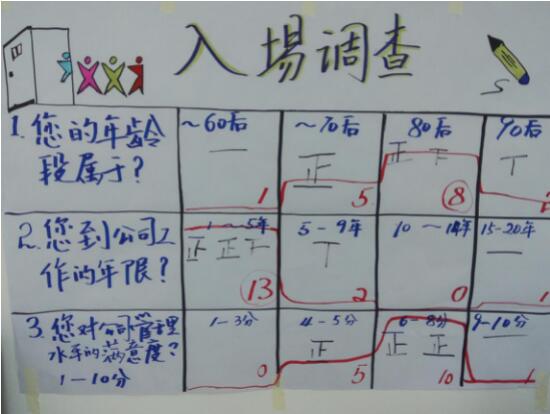 入場调查
1.您的年龄段属于?
~60后 ~70后 80后 90后
一 正 正下 丅
1 5 8
2.您到公司工作的年限?
1~5年 5-9年 10-14年 15-20年
正正下 丅 一
13 2 0 1
3.您对公司管理水平的满意度?
1-10分
1-3分 4-5分 6-8分 9-10分
正 正正 一
0 5 10 1